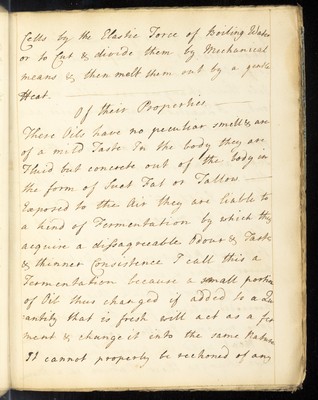 Cells by the Elastic Force of Boiling Water
or to Cut & divide them by Mechanical
means & then melt them out by a gentle
Heat.
Of their Properties
These Oils have no peculiar smell & are
of a mild Taste In the body they are
Fluid but concrete out of the body in
the form of Suet Fat or Tallow
Exposed to the Air they are liable to
a kind of Fermentation by which they
acquire a disagreeable Odour & Taste
& thinner Consistence I call this a
Fermentation because a small portion
of Oil thus changed if added to a Qu
antity that is fresh will act as a fer
ment & change it into the same Nature
It cannot properly be reckoned of any